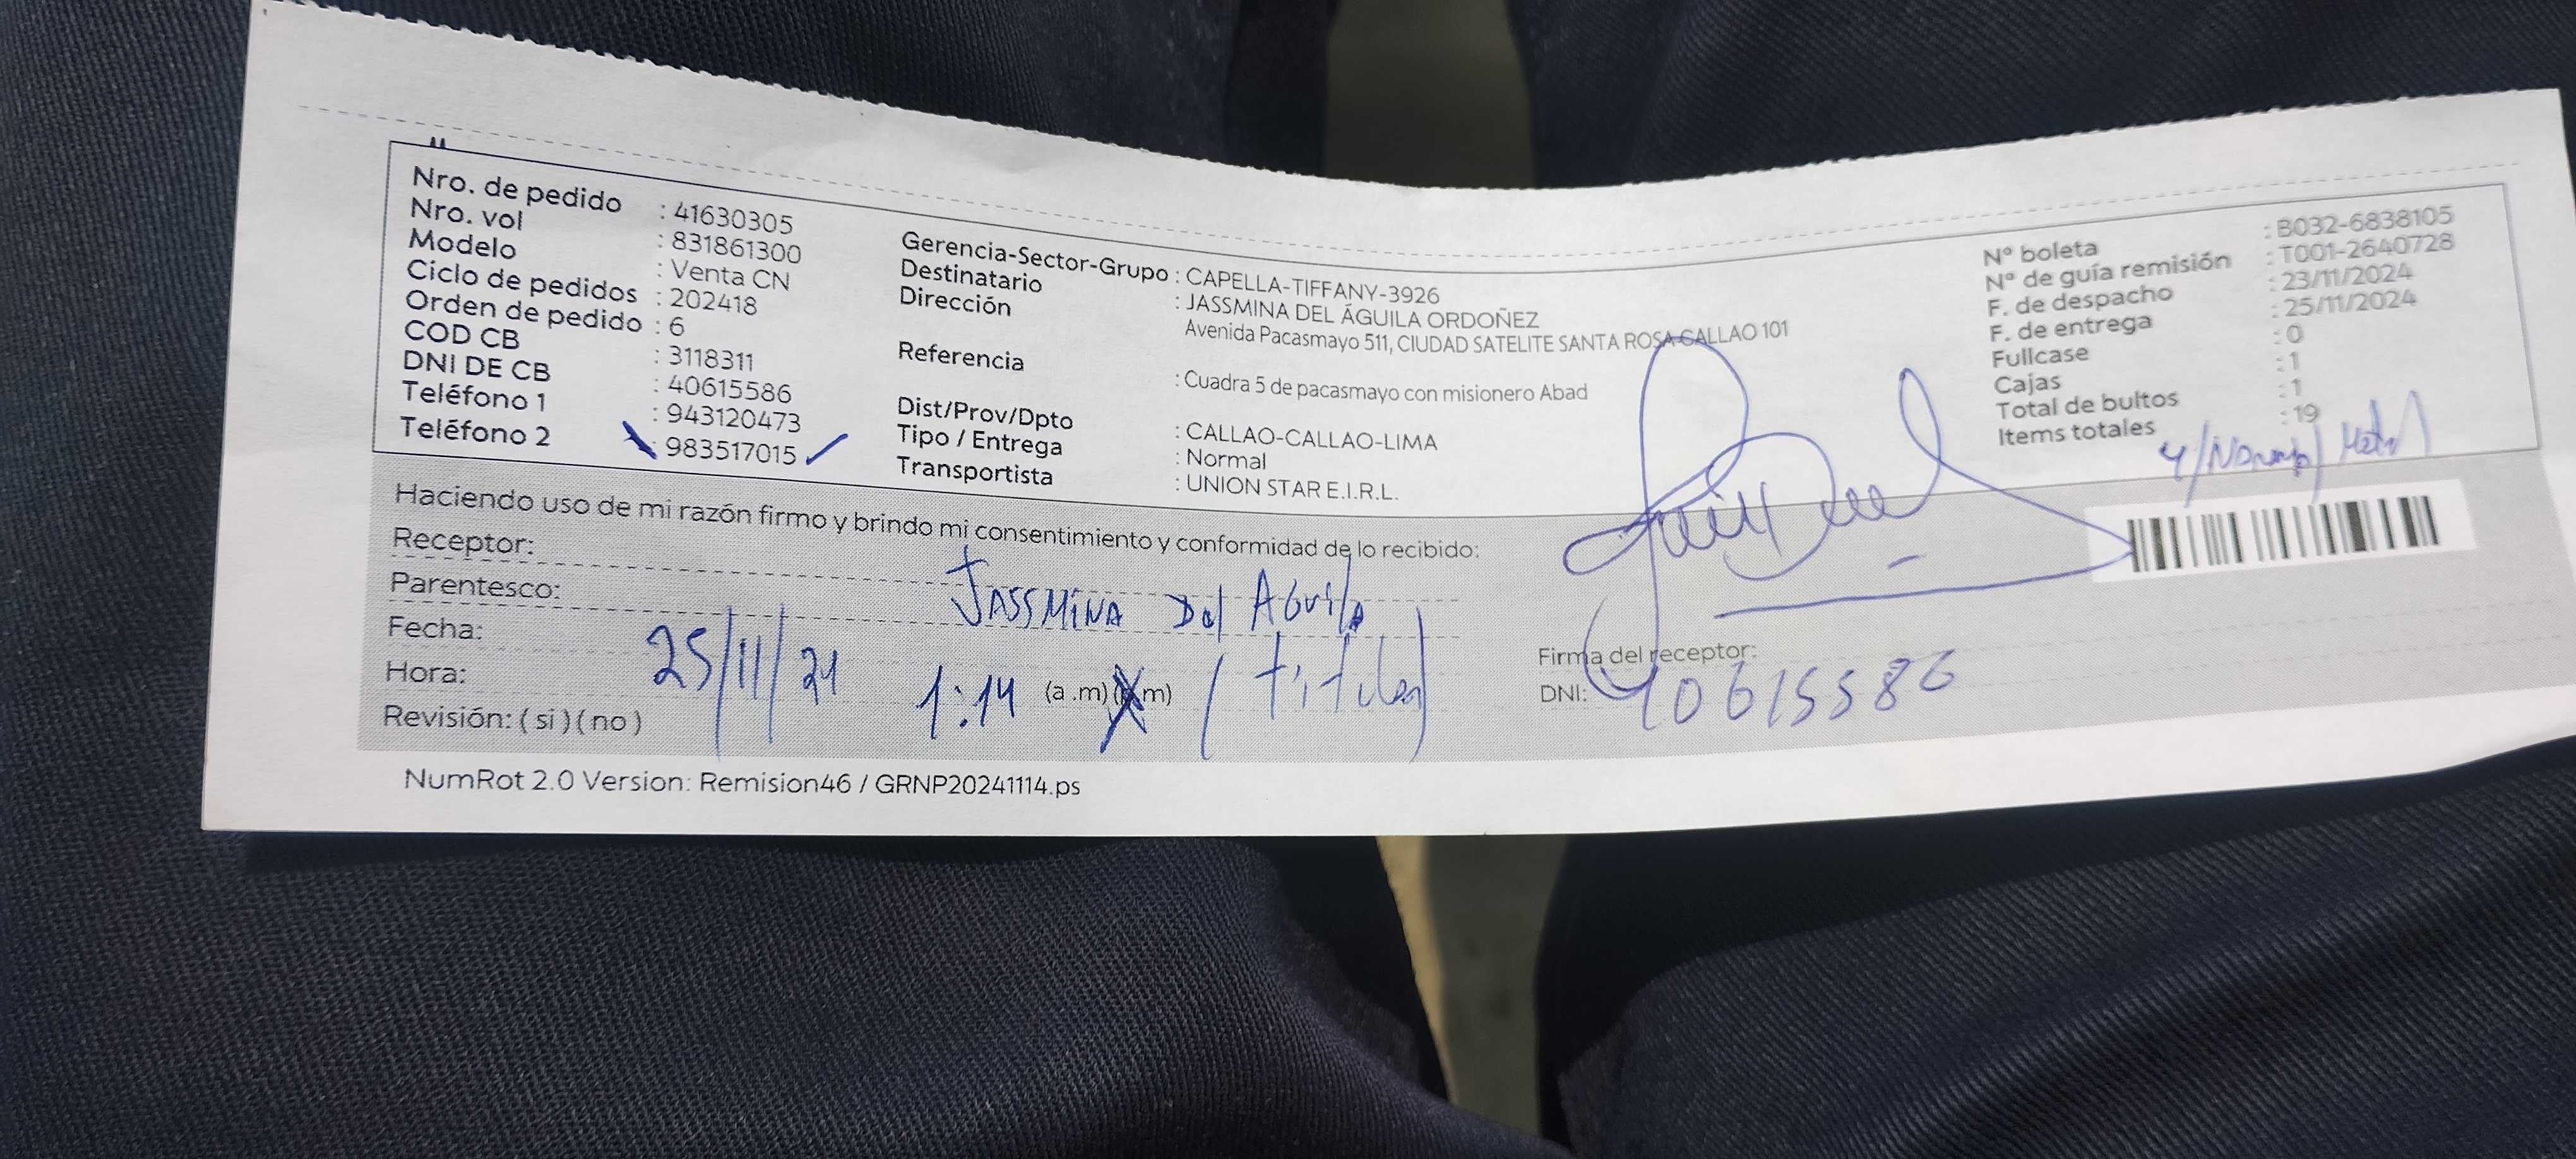 Nro. de pedido : 41630305
Nro. vol : 831861300
Modelo : Venta CN
Ciclo de pedidos : 202418
Orden de pedido : 6
COD CB : 3118311
DNI DE CB : 40615586
Teléfono 1 : 943120473
Teléfono 2 : 983517015
Gerencia-Sector-Grupo : CAPELLA-TIFFANY-3926
Destinatario : JASSMINA DEL ÁGUILA ORDOÑEZ
Dirección Avenida Pacasmayo 511, CIUDAD SATELITE SANTA ROSA CALLAO 101
Referencia : Cuadra 5 de pacasmayo con misionero Abad
Dist/Prov/Dpto : CALLAO-CALLAO-LIMA
Tipo / Entrega : Normal
Transportista : UNION STAR E.I.R.L.
N° boleta : B032-6838105
N° de guía remisión : T001-2640728
F. de despacho : 23/11/2024
F. de entrega : 25/11/2024
Fullcase : 0
Cajas : 1
Total de bultos : 1
Items totales : 19
Haciendo uso de mi razón firmo y brindo mi consentimiento y conformidad de lo recibido:
Receptor: JASSMINA Del AGuila
Parentesco:
Fecha: 25/11/24
Hora: 1:14 (a .m) (p.m) (titular)
Revisión: ( si ) ( no )
Firma del receptor:
DNI: 40615586
NumRot 2.0 Version: Remision46 / GRNP20241114.ps